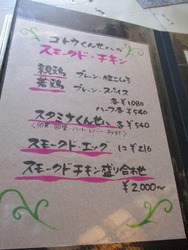 ゴトウくんせいの
スモークド・チキン
親鶏 プレーン・粒こしょう
若鶏 プレーン・スパイス
各¥1080
ハーフ各¥540
スタミナくんせい 各¥540
スモークド・エッグ 1コ¥216
スモークドチキン盛り合わせ
¥2,000〜